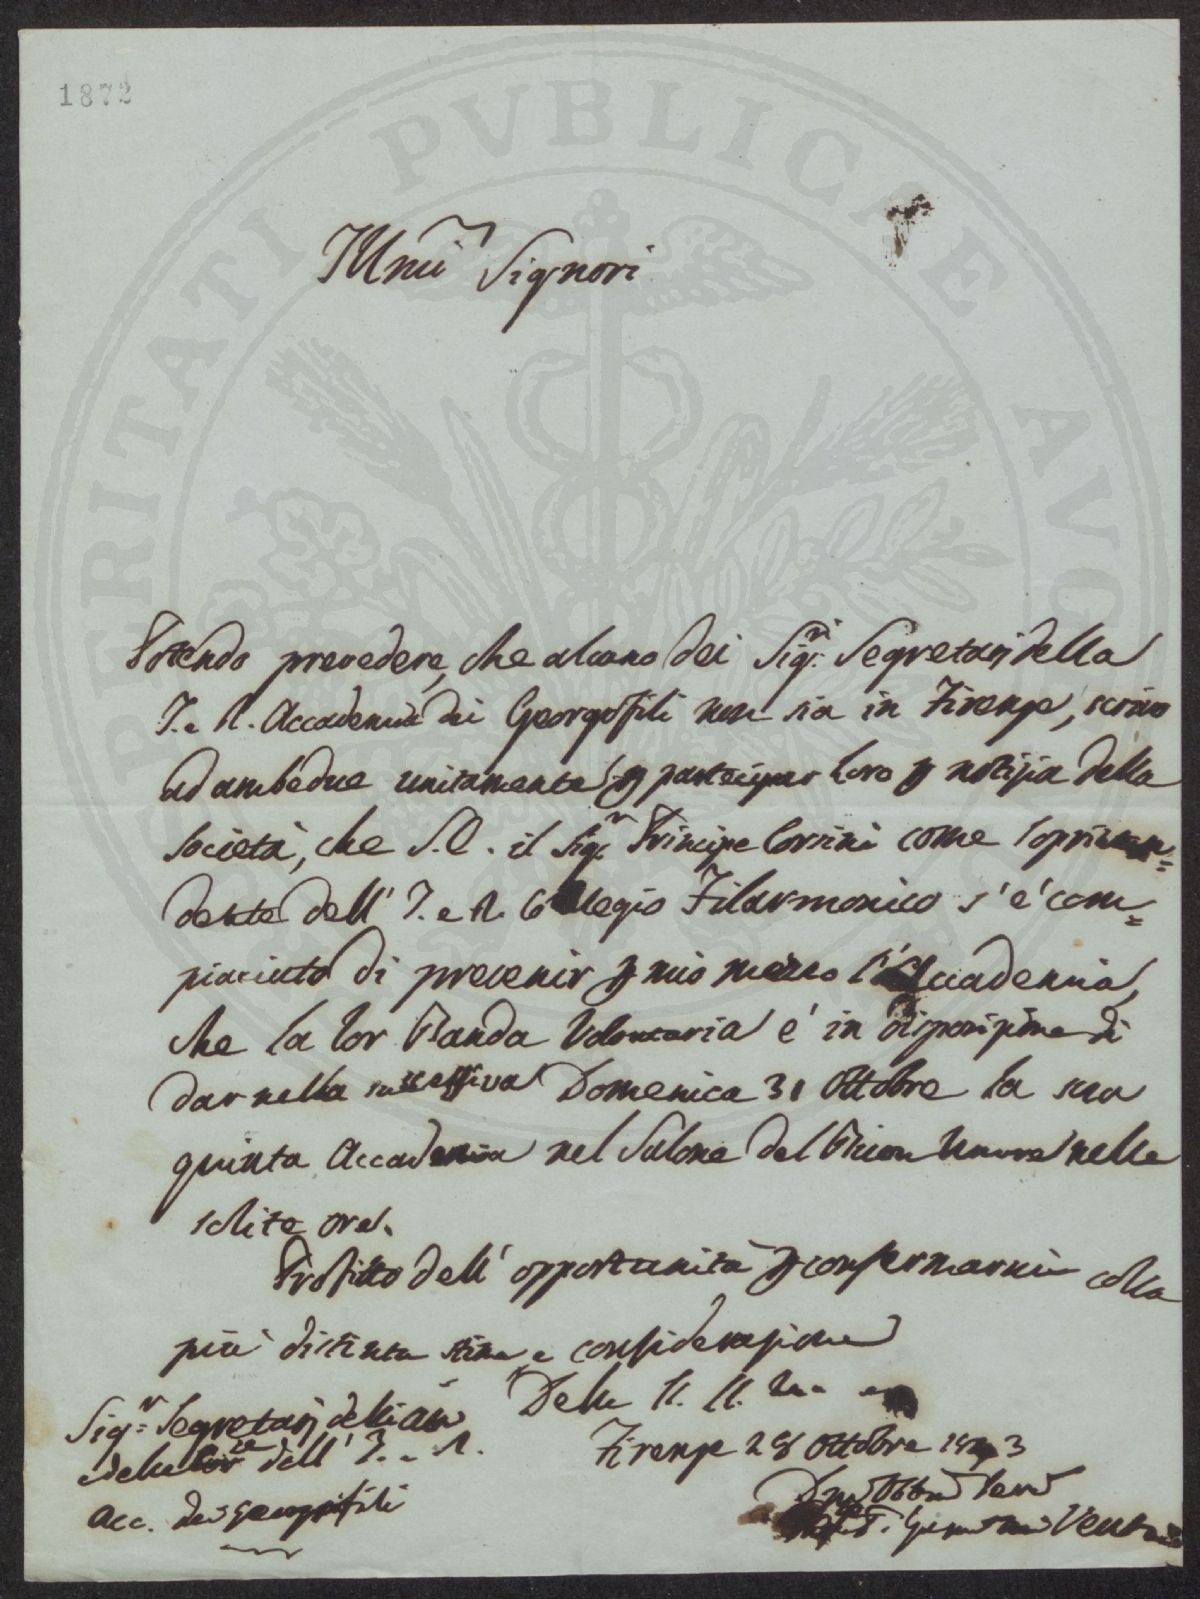 1872
PROSPERITATI PVBLICAE AVGENDAE
Illmi Signori
Potendo prevedere, che alcuno dei Sigri. Segretarj della
I. e R. Accademia dei Georgofili non sia in Firenze, scrivo
ad ambedue unitamente p partecipar loro p notizia della
Società, che S.E. il Sigr Principe Corsini come Soprinten=
dente dell' I. e R. Collegio Filarmonico s'é com=
piaciuto di prevenir p mio mezzo l'Accademia,
che la lor Banda Volontaria é in disposizione di
dar nella successiva Domenica 31 Ottobre la sua
quinta Accademia nel Salone del nelle
solite ore.
Profitto dell' opportunità p confermarmi colla
più distinta stima e considerazione
Delle LL. SS.
Firenze 28 Ottobre
Sigri Segretarj degli Atti
e delle dell' I. e R.
Acc. dei Georgofili
Devmo Obbmo Serv